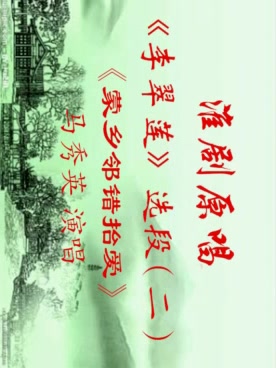 淮剧原唱
《李翠莲》选段(二)
《蒙乡邻错抬爱》
马秀英 演唱